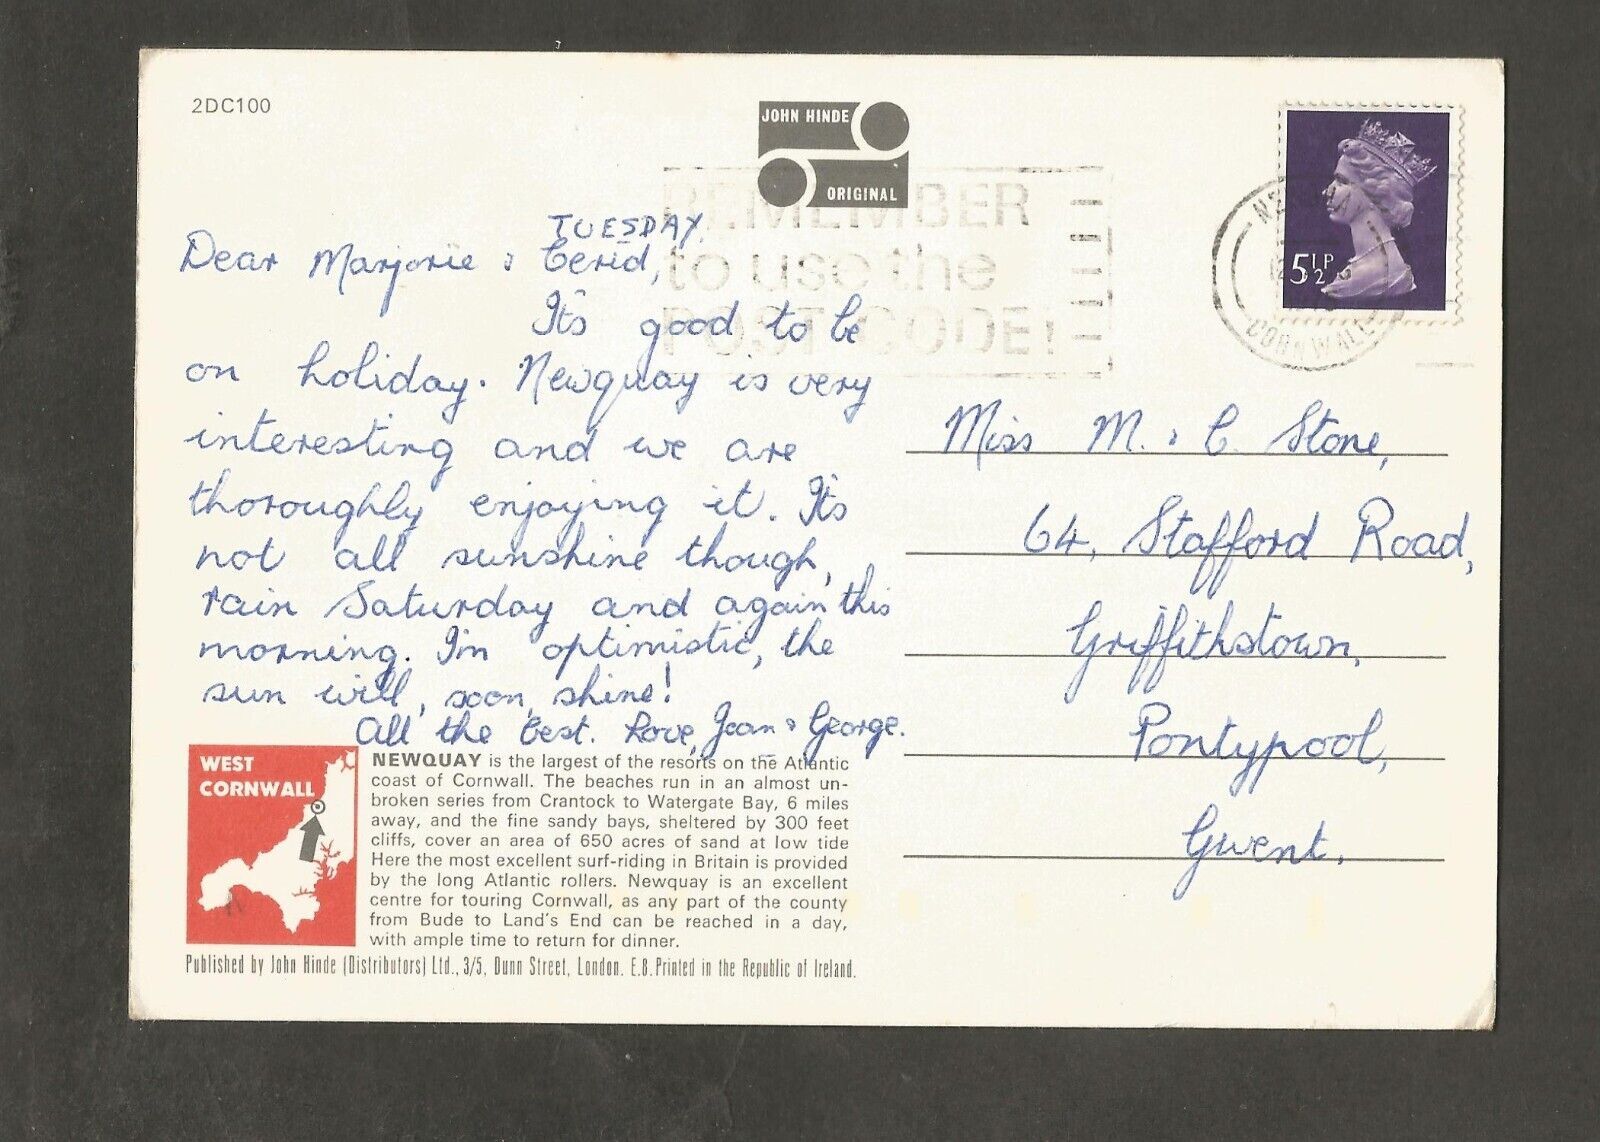 2DC100
JOHN HINDE
ORIGINAL
REMEMBER
to use the
POST CODE!
CORNWALL
5½P
TUESDAY.
Dear Marjorie & Cerid,
It's good to be
on holiday. Newquay is very
interesting and we are
thoroughly enjoying it. It's
not all sunshine though,
rain Saturday and again this
morning. I'm optimistic, the
sun will, soon, shine!
All the best. Love, Jean & George.
Miss M. & C. Stone,
64, Stafford Road,
Griffithstown,
Pontypool,
Gwent.
WEST
CORNWALL
NEWQUAY is the largest of the resorts on the Atlantic
coast of Cornwall. The beaches run in an almost un-
broken series from Crantock to Watergate Bay, 6 miles
away, and the fine sandy bays, sheltered by 300 feet
cliffs, cover an area of 650 acres of sand at low tide
Here the most excellent surf-riding in Britain is provided
by the long Atlantic rollers. Newquay is an excellent
centre for touring Cornwall, as any part of the county
from Bude to Land's End can be reached in a day,
with ample time to return for dinner.
Published by John Hinde (Distributors) Ltd., 3/5, Dunn Street, London. E.8. Printed in the Republic of Ireland.